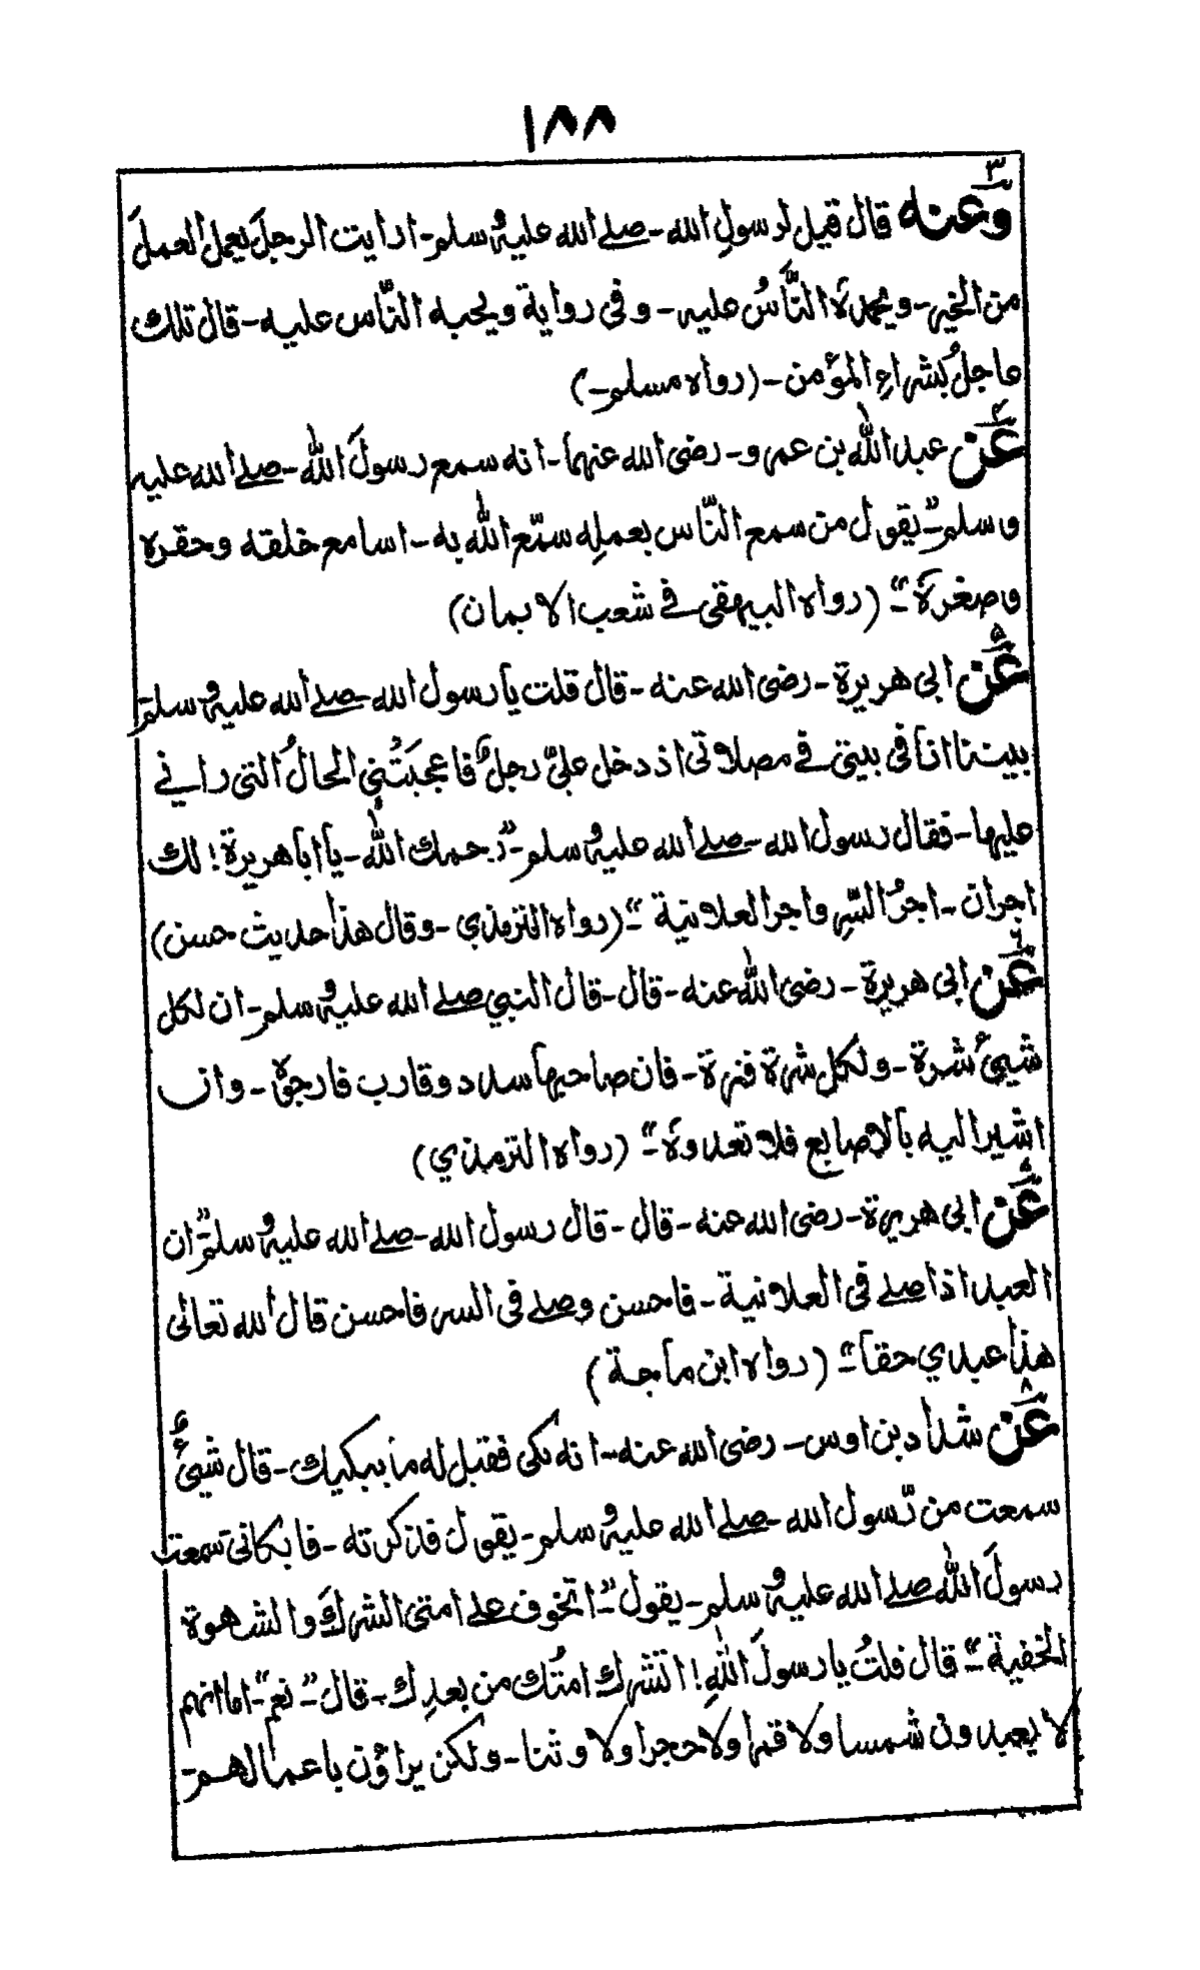 ١٨٨
٣
وعنه قال قيل لرسولِ الله - صلے الله عليه وسلم - ارايت الرجلَ يعمل العملَ
من الخير - ويحمدهُ النَّاسُ عليه - وفى رواية ويحبه النّاس عليه - قال تلك
عاجلُ بُشراءِ المؤمن - (رواه مسلم -)
٤
عن عبد الله بن عمرو - رضى الله عنهما - انه سمع رسولَ الله - صلے الله عليه
وسلم - "يقول من سمع النّاس بعملِه سمّع الله به - اسامع خلقه وحقره
وصغرهٗ" - (رواه البيهقى فے شعب الايمان)
٥
عن ابى هريرة - رضى الله عنه - قال قلت يا رسول الله - صلے الله عليه وسلم -
بيتنا انا فى بيتى فے مصلاتى اذ دخل علىّ رجلٌ فاعجبَتْنِى الحالُ التى رانے
عليها - فقال رسول الله - صلے الله عليه وسلم - "رحمك الله - يا ابا هريرة! لك
اجران - اجرُ السِّرِ واجر العلانية" - (رواه الترمذي - وقال هذا حديث حسن)
٦
عن ابى هريرة - رضى الله عنه - قال - قال النبي صلے الله عليه وسلم - ان لكل
شيئ شرة - ولكل شرة فترة - فان صاحبها سدد وقارب فارجوهٗ - وان
اشير اليه بالاصابع فلا تعدوهٗ" - (رواه الترمذي)
٧
عن ابى هريرة - رضى الله عنه - قال - قال رسول الله - صلے الله عليه وسلم "ان
العبد اذا صلے فى العلانية - فاحسن وصلے فى السر فاحسن قال الله تعالى
هذا عبدي حقا" - (رواه ابن ماجة)
٨
عن شداد بن اوس - رضى الله عنه - انه بكى فقيل له ما يبكيك - قال شيئٌ
سمعت من رّسول الله - صلے الله عليه وسلم - يقول فذكرته - فابكانى سمعت
رسولَ الله صلے الله عليه وسلم - يقول - "اتخوف علے امتى الشركَ والشهوة
الخفية" - قال قلتُ يا رسولَ اللهِ! اتشرك امتُك من بعدِك - قال - "نعم" - اما انهم
لا يعبدون شمسا ولا قمرا ولا حجرا ولا وثنا - ولكن يراؤن باعمالهم -